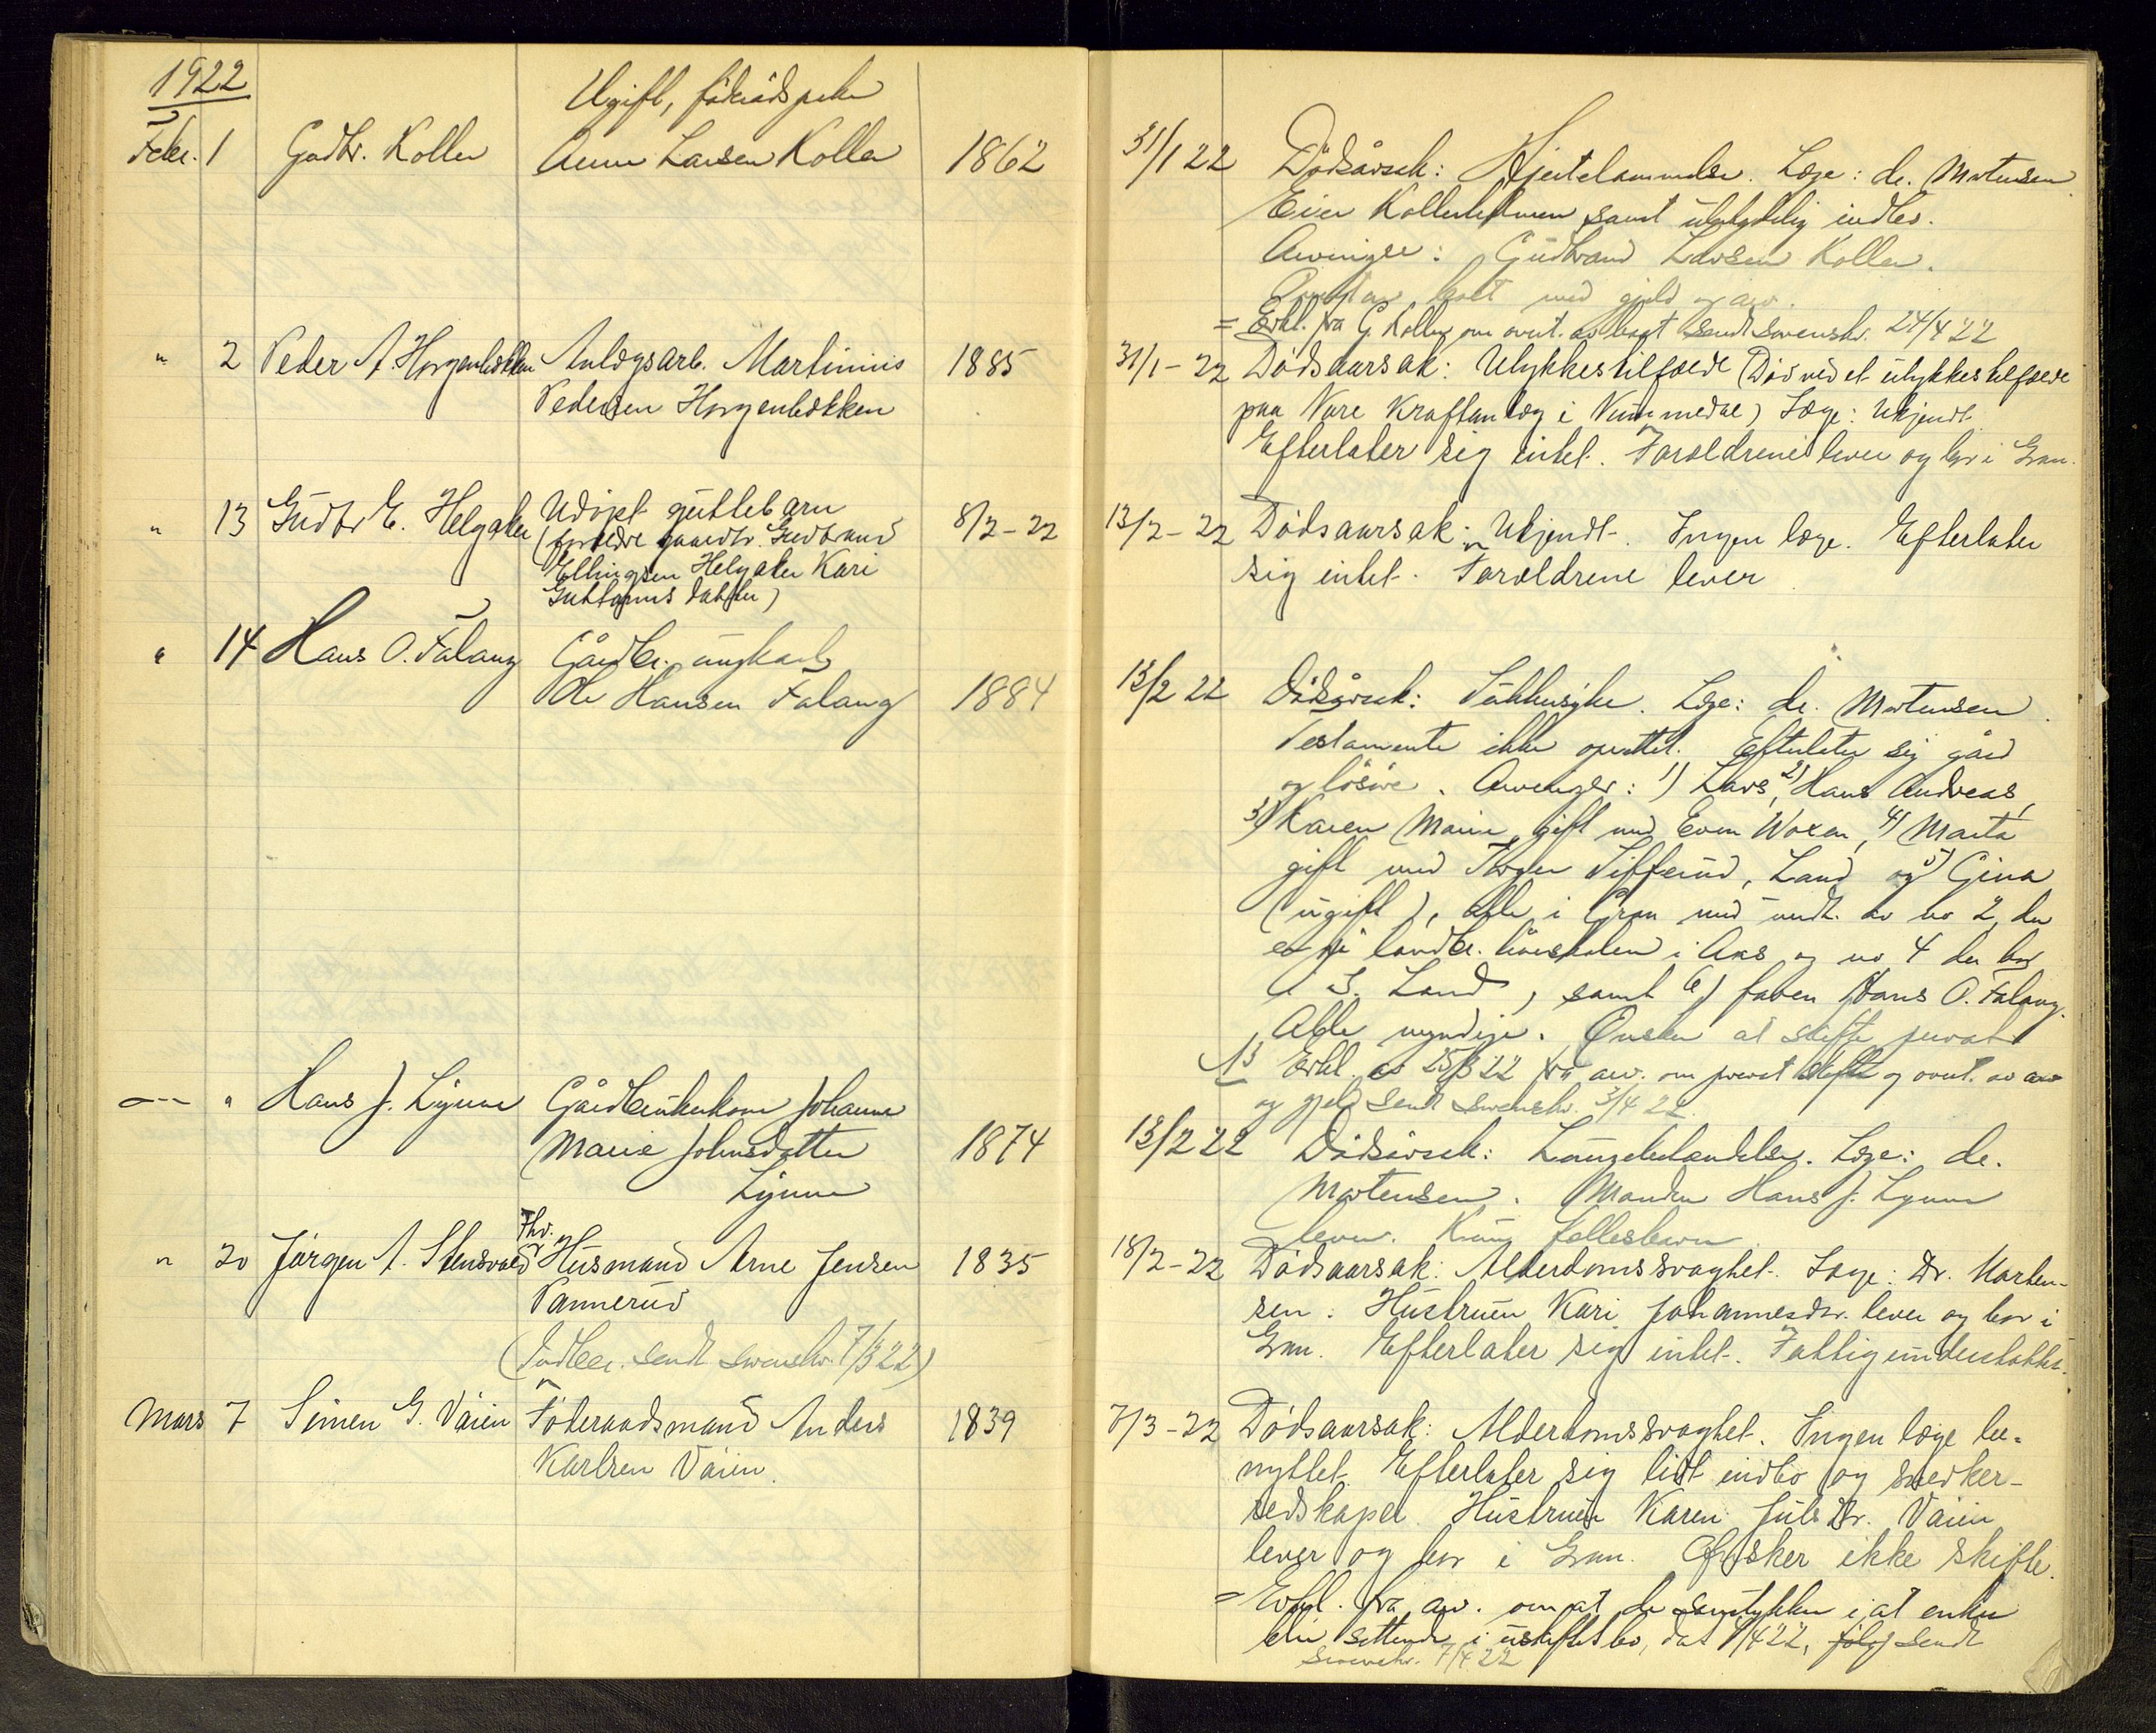 1922
Ugift, föderådspike
Febr. 1 Gudbr. Kollen Anne Larsen Kollen 1862 31/1 22 Dödsårsak: Hjertelammelse. Læge: dr. Mortensen.
Eier Kollenholmen samt ubetydelig indbo.
Arvinger: Gudbrand Larsen Kollen.
bolt med gjeld og arv.
= Erkl. fra G Kollen om overt. av boet sendt sorenskr. 24/4 22
" 2 Peder A. Horgenbakken Anlægsarb. Martinius 1885 31/1-22 Dødsaarsak: Ulykkestilfælde (Død ved et ulykkestilfælde
Pedersen Horgenbakken paa Nore Kraftanlæg i Nummedal) Læge: Ukjendt.
Efterlater sig intet. Forældrene lever og bor i Gran.
" 13 Gudbr E. Helgaker Udøpt guttebarn 8/2-22 13/2-22 Dødsaarsak: Ukjendt. Ingen læge. Efterlater
(forældre gaardbr. Gudbrand sig intet. Forældrene lever
Ellingsen Helgaker Kari
Guttorms datter)
" 14 Hans O. Falang Gårdbr. ungkarl
Ole Hansen Falang 1884 13/2 22 Dödsårsak: Sukkersyke. Læge: dr. Mortensen.
Testamente ikke oprettet. Efterlater sig gård
og lösöre. Arvinger: 1) Lars, 2) Hans Andreas,
3) Karen Marie, gift med Even Woxen, 4) Marta
gift med Torger Tifferud, Land og 5) Gina
(ugift), alle i Gran med undt. av no 2, der
er på landbr. höiskolen i Aas og no 4 der bor
i S. Land, samt 6) faren Hans O. Falang.
Alle myndige. Önsker at skifte privat
Erkl. av 25/3 22 fra arv. om privat skifte og overt. av arv
og gjeld sendt sorenskr. 3/4 22.
— " Hans J. Lynne Gårdbrukerkone Johanne
Marie Johnsdatter 1874 13/2 22 Dödsårsak: Lungebetændelse. Læge: dr.
Lynne Mortensen. Manden Hans J. Lynne
lever. Kun fellesbarn
" 20 Jørgen A. Stensvold Fhv. Husmand Arne Jensen 1835 18/2-22 Dødsaarsak: Alderdomssvaghet. Læge: Dr. Morten-
Vannerud sen. Hustruen Kari Johannesdtr. lever og bor i
Gran. Efterlater sig intet. Fattigunderstøttet.
(Indber. sendt sorenskr. 7/3 22)
Mars 7 Simen G. Väien Føderaadsmand Anders 1839 7/3-22 Dødsaarsak: Alderdomssvaghet. Ingen læge be-
Karlsen Väien. nyttet. Efterlater sig lidt indbo og snedker-
redskaper. Hustruen Karen Juls Dtr. Väien
lever og bor i Gran. Ønsker ikke skifte.
= Erkl. fra arv. om at de samtykker i at enken
blir sittende i uskiftet bo, dat 1/4 22, sendt
sorenskr. 7/4 22